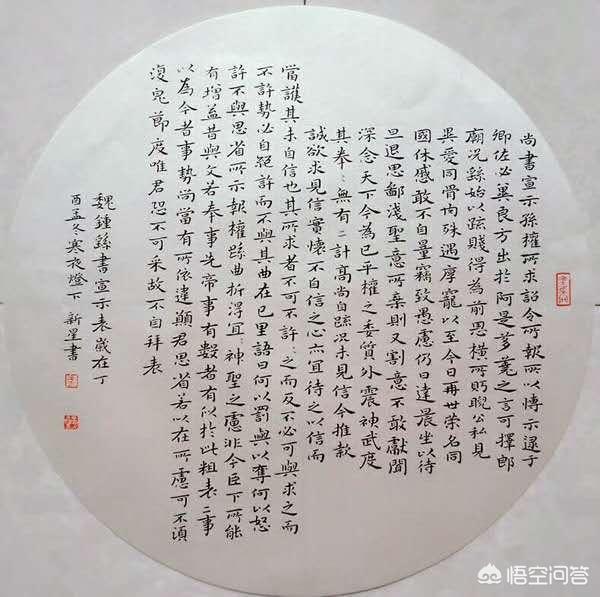 尚書宣示孫權所求詔令所報所以博示逮于
卿佐必冀良方出於阿是芻蕘之言可擇郎
廟況繇始以疏賤得為前恩橫所眄睨公私見
異愛同骨肉殊遇厚寵以至今日再世榮名同
國休慼敢不自量竊致愚慮仍日達晨坐以待
旦退思鄙淺聖意所棄則又割意不敢獻聞
深念天下今為已平權之委質外震神武度
其拳：無有二計高尚自疏況未見信今推款
誠欲求見信實懷不自信之心亦宜待之以信而
當護其未自信也其所求者不可不許：之而反不必可與求之而
不許勢必自絕許而不與其曲在已里語曰何以罰與以奪何以怒
許不與思省所示報權疏曲折得宜：神聖之慮非今臣下所能
有增益昔與文若奉事先帝事有數者有似於此粗表二事
以為今者事勢尚當有所依違願君思省若以在所慮可不須
復皃節度唯君恐不可采故不自拜表
魏鍾繇書宣示表歲在丁
酉孟冬寒夜燈下新星書
悟空问答